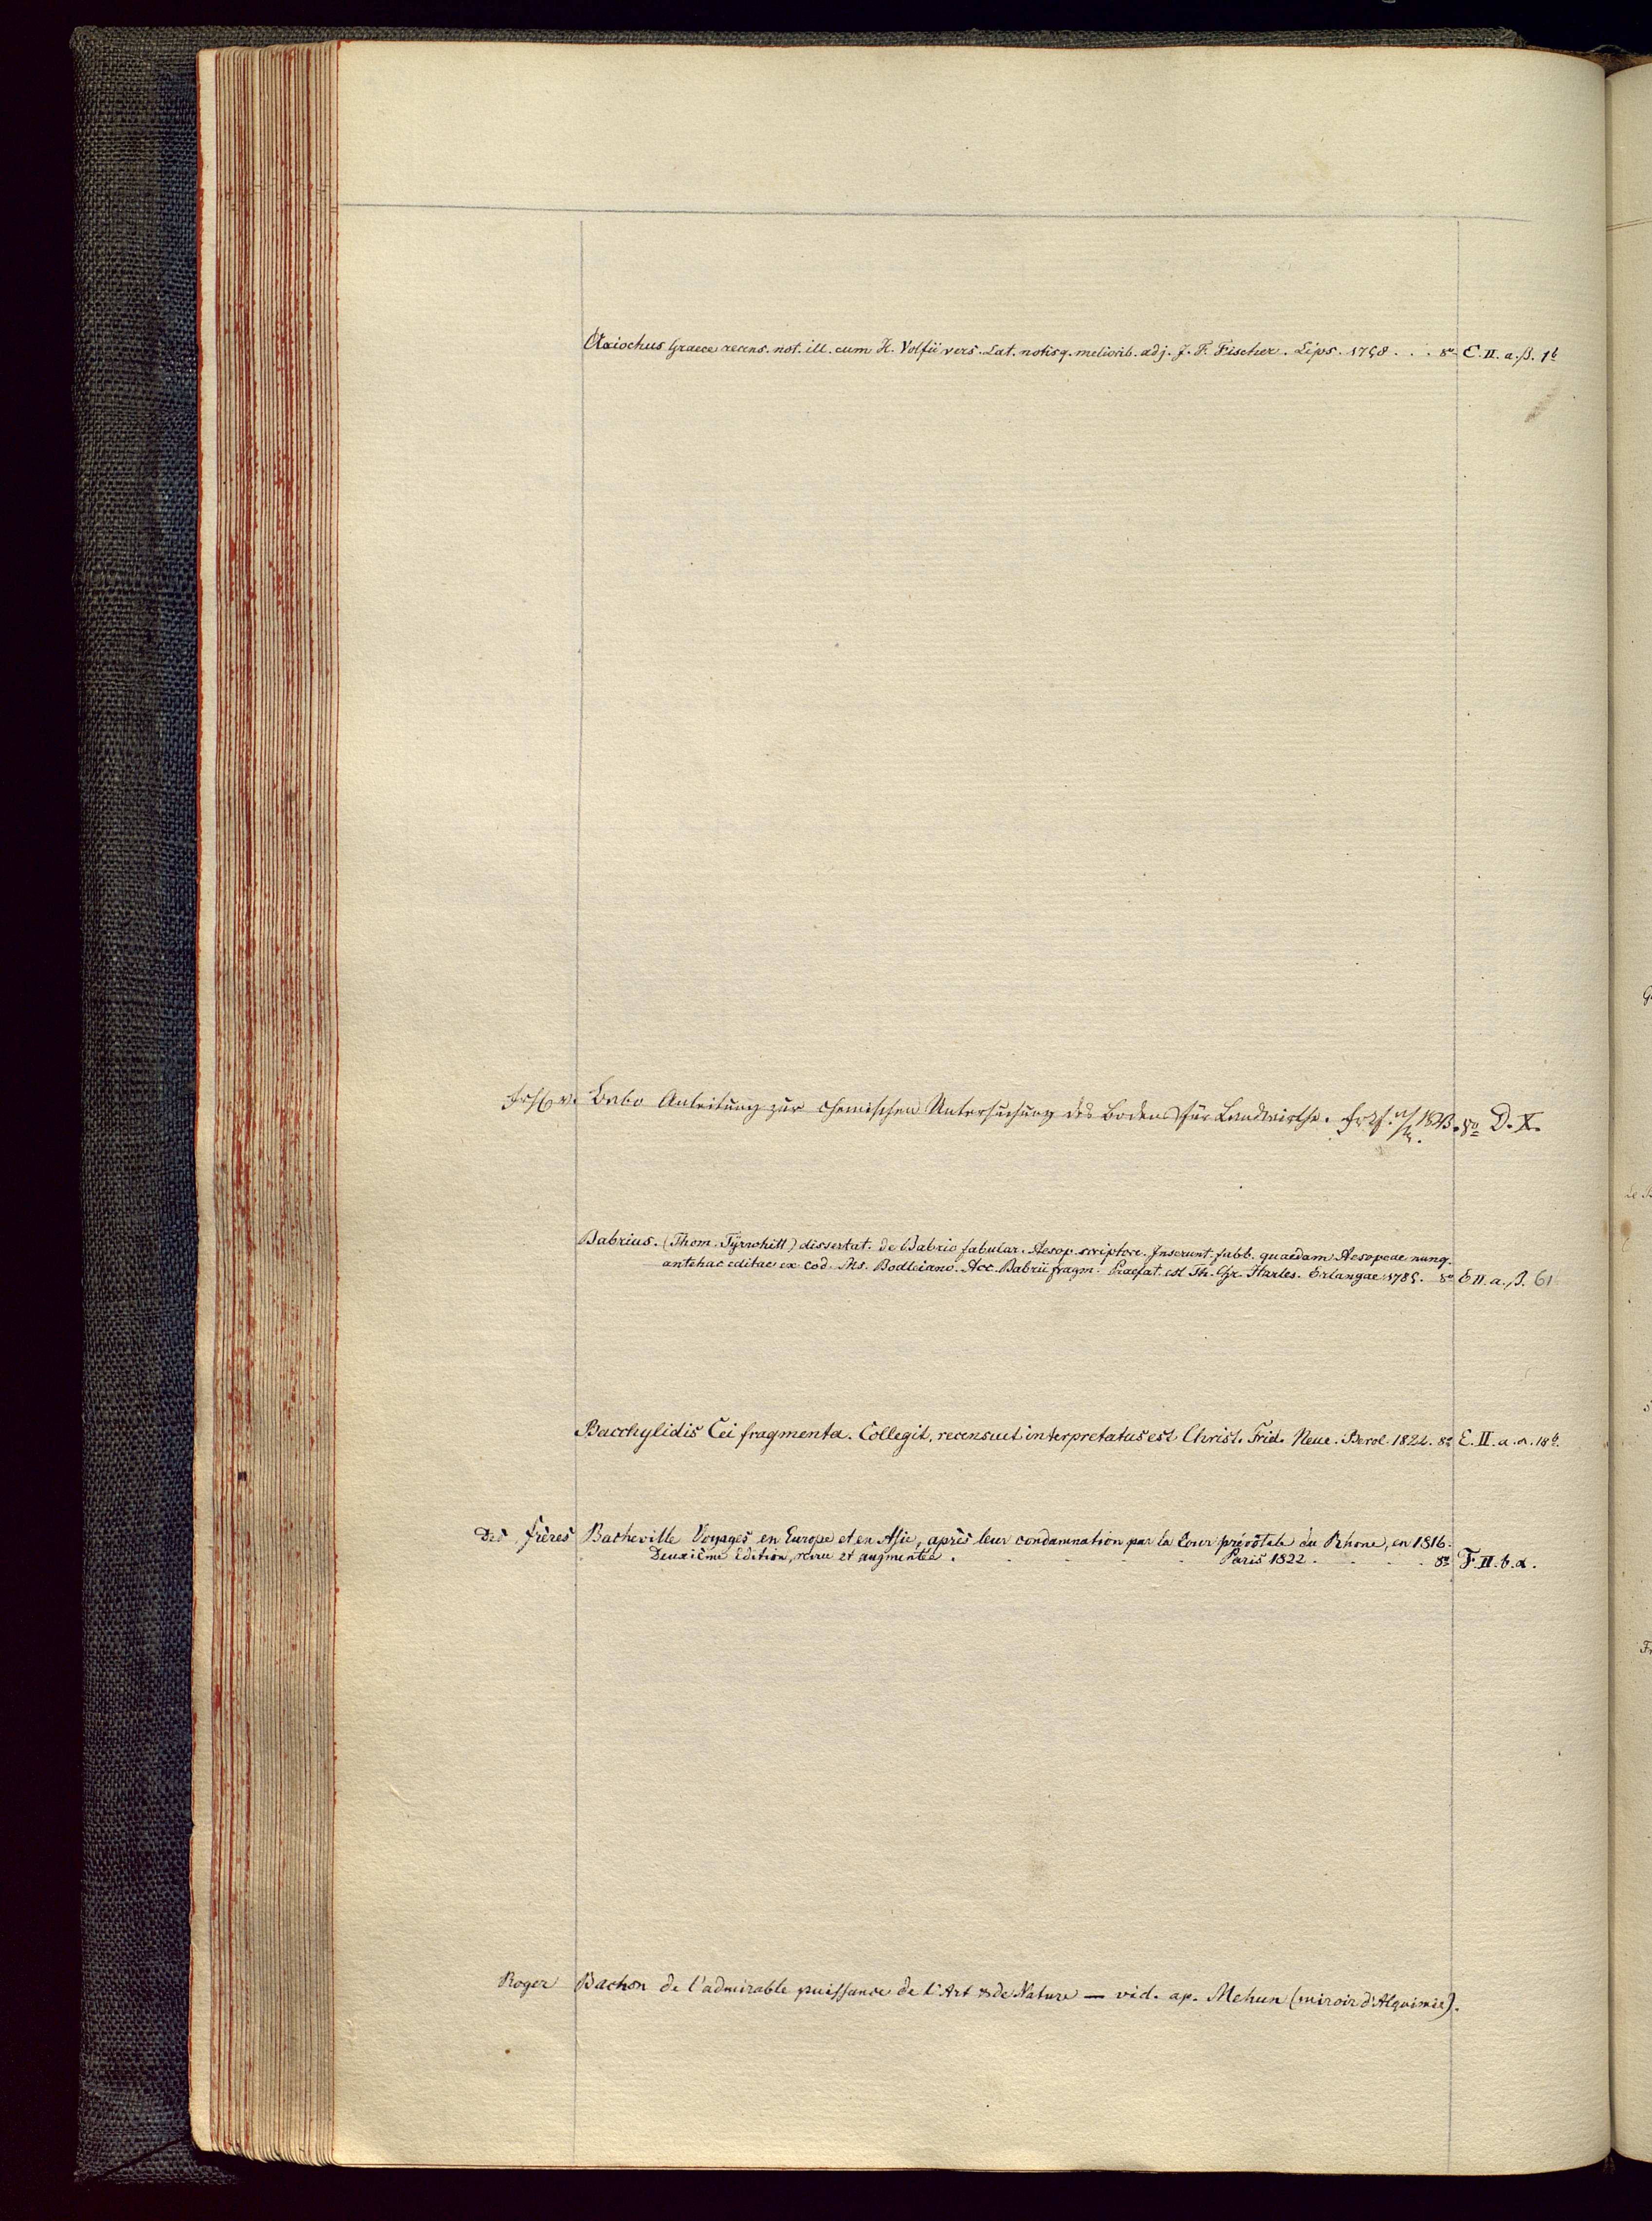 Axiochus Graece recens. not. ill. cum H. Volfii vers. Lat. notisq. meliorib. adj. J. F. Fischer. Lips. 1758 . . . 8º E. II. a. β. 1b
Frh. v. Babo Anleitung zur chemischen Untersuchung des Bodens für Landwirthe. Frkf. a/M. 1843. 8º D. X.
Babrius. (Thom. Tyrwhitt) dissertat. de Babrio fabular. Aesop. scriptore. Inserunt. fabb. quaedam Aesopeae nunq.
antehac editae ex cod. Ms. Bodleiano. Acc. Babrii fragm. Praefat. est Th. Chr. Harles. Erlangae 1785. 8º E II. a. β. 61
Bacchylidis Cei fragmenta. Collegit, recensuit interpretatus est Christ. Frid. Neue. Berol. 1822. 8º E. II. a. α. 18b.
Des frères Bacheville Voyages en Europe et en Asie, après leur condamnation par la Cour prévôtale du Rhone, en 1816.
Deuxième Edition, revue et augmentée. . . . . Paris 1822 . . . . 8º F. II. b. α.
Roger Bachon de l'admirable puissance de l'Art & de Nature — vid. ap. Mehun (miroir d'Alquimie).